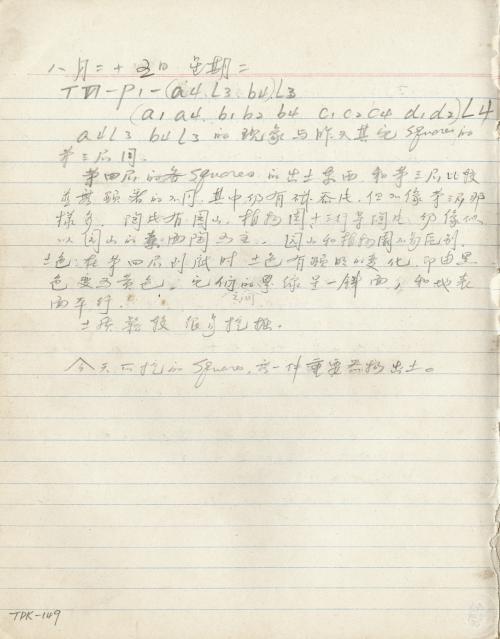 八月二十五日 星期二
TПI-P1-(a4.L3. b4)L3
(a1 a4. b1 b2 b4 c1 c2 c4 d1 d2)L4
a4L3 b4L3 的現象与昨天其它 Squares的
第三层同.
第四层的各Squares 的出土東西 和第三层比較
顯著的不同. 其中仍有磁器片, 但不像第三层那
樣多. 陶片有圓山, 植物園, 十三行等陶片, 仍像似
以圓山的 陶为主.
土色: 在第四层到底时 土色有顯明的变化. 即由黑
色变为黄色. 它们之间的界線呈一斜面, 和地表
面平行.
土质鬆較 很易挖掘.
今天所挖的 Squares, 无一件重要器物出土。
TPK-149